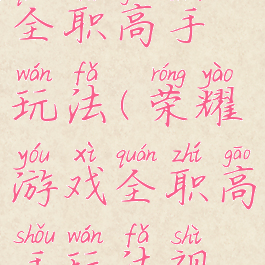 全职高手
wán fǎ róng yào
玩法(荣耀
yóu xì quán zhí gāo
游戏全职高
shǒu wán fǎ shì
手玩法视